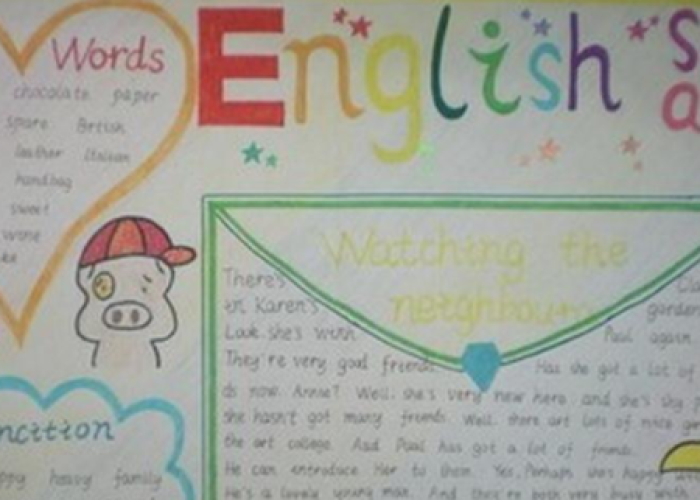 English
Words
chocolate paper
spare British
leather Italian
handbag
sweet
Watching the
neighbours
There's
in Karen's garden
Look she's with Paul again
They're very good friends. Has she got a lot of
ds now. Annie? Well. she's very new here and she's shy
she hasn't got many friends. Well. there are lots of nice
the art college. And Paul has got a lot of friends.
He can introduce Her to them. Yes. Perhaps she's happy
He's a lovely young man. And they're both very
nction
ppy heavy family